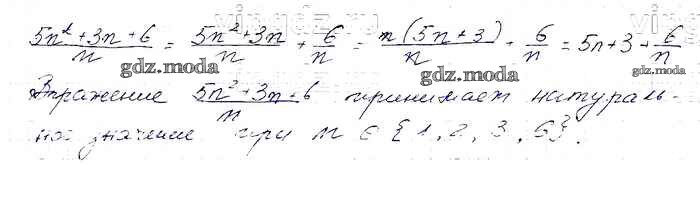 vingdz.ru
(5n² + 3n + 6)/n = (5n² + 3n)/n + 6/n = n(5n + 3)/n + 6/n = 5n + 3 + 6/n
gdz.moda gdz.moda gdz.moda
Выражение (5n² + 3n + 6)/n принимает натураль-
ное значение при n ∈ {1, 2, 3, 6}.
gdz.moda gdz.moda